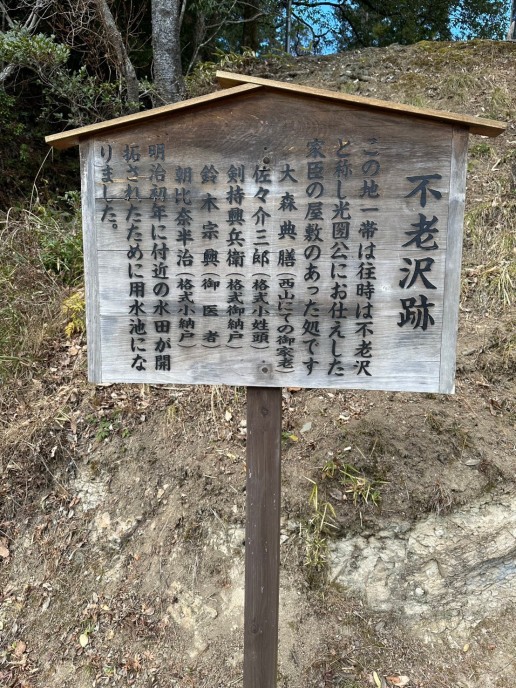 不老沢跡
この地一帯は往時は不老沢
と称し光圀公にお仕えした
家臣の屋敷のあった処です
大森典膳（西山にての御家老）
佐々介三郎（格式小姓頭）
剣持興兵衛（格式御納戸）
鈴木宗興（御医者）
朝比奈半治（格式小納戸）
明治初年に付近の水田が開
拓されたために用水池にな
りました。